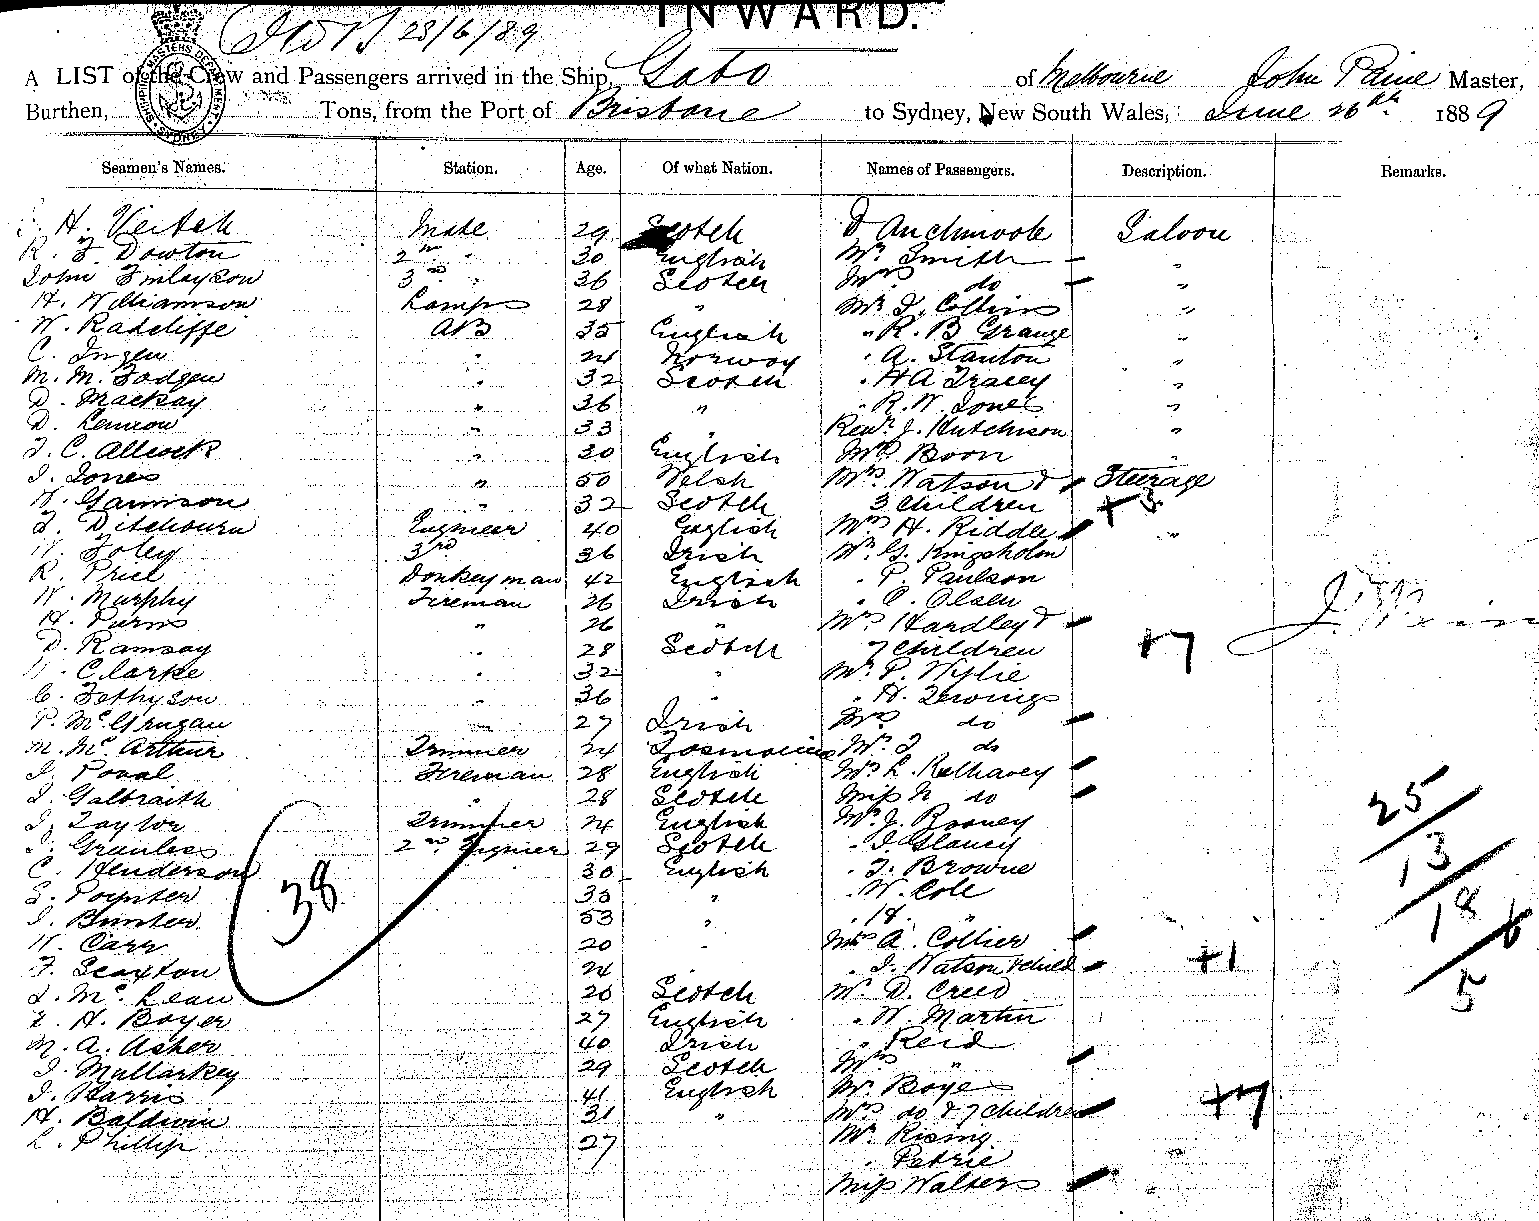 INWARD.
28/6/89
A LIST of the Crew and Passengers arrived in the Ship, Gabo of Melbourne John Paine Master,
Burthen, Tons, from the Port of Brisbane to Sydney, New South Wales, June 26th 1889
SHIPPING MASTERS DEPARTMENT SYDNEY
Seamen's Names. Station. Age. Of what Nation. Names of Passengers. Description. Remarks.
H. Veitch Mate 29 Scotch D Auchmoole Saloon
R. F. Dowton 2nd " 30 English Mr Smith "
John Finlayson 3rd " 36 Scotch Mrs do "
H. Williamson Lamps 28 " Mr J. Collins "
W. Radcliffe AB 35 English " R. B Grange "
C. Ingen " 24 Norway " A. Stanton "
M. M. Fadgen " 32 Scotch " H A Tracey "
D. Mackay " 36 " " R. W. Jones "
D. Lennow " 33 " Revd J. Hutchison "
J. C. Allcock " 30 English Mr Boon "
J. Jones " 50 Welsh Mrs Watson & Steerage
W. Gammson " 32 Scotch 3 children +3
F. Ditchburn Engineer 40 English Mrs H. Riddle "
W. Foley 3rd 36 Irish Mr G. Kingsholm
R. Price Donkeyman 42 English " P. Paulson
W. Murphy Fireman 26 Irish " O. Olsen
H. Purns " 26 " Mrs Hardley &
D. Ramsay " 28 Scotch 7 children +7
W. Clarke " 32 " Mr P. Wylie
C. Fethyson " 36 " " H. Tewings
P. McGrugan " 27 Irish Mrs do
M. McArthur Trimmer 24 Tasmania Mr J do
J. Poval Fireman 28 English Mrs L. Kelhavey
J. Galbraith " 28 Scotch Miss N do
J. Taylor Trimmer 24 English Mr J. Rooney
J. Grunless 2nd Engineer 29 Scotch " J. Glancy
C. Henderson 30 English " J. Browne
S. Poynter 35 " " W. Cole
J. Bunter 53 " " 18 "
W. Carr 20 " Mrs A. Collier
F. Scaxton 24 " J. Watson & child +1
J. McLean 20 Scotch Mr D. Creed
F. H. Boyer 27 English " W. Martin
M. A. Asher 40 Irish " Reid
J. Mullarkey 29 Scotch Mrs "
J. Harris 41 English Mr Boyes
H. Baldwin 31 " Mrs do & 7 children +7
L. Phillip 27 Mr Rising
" Petrie
Miss Walters "
38
25
13
18
6
5